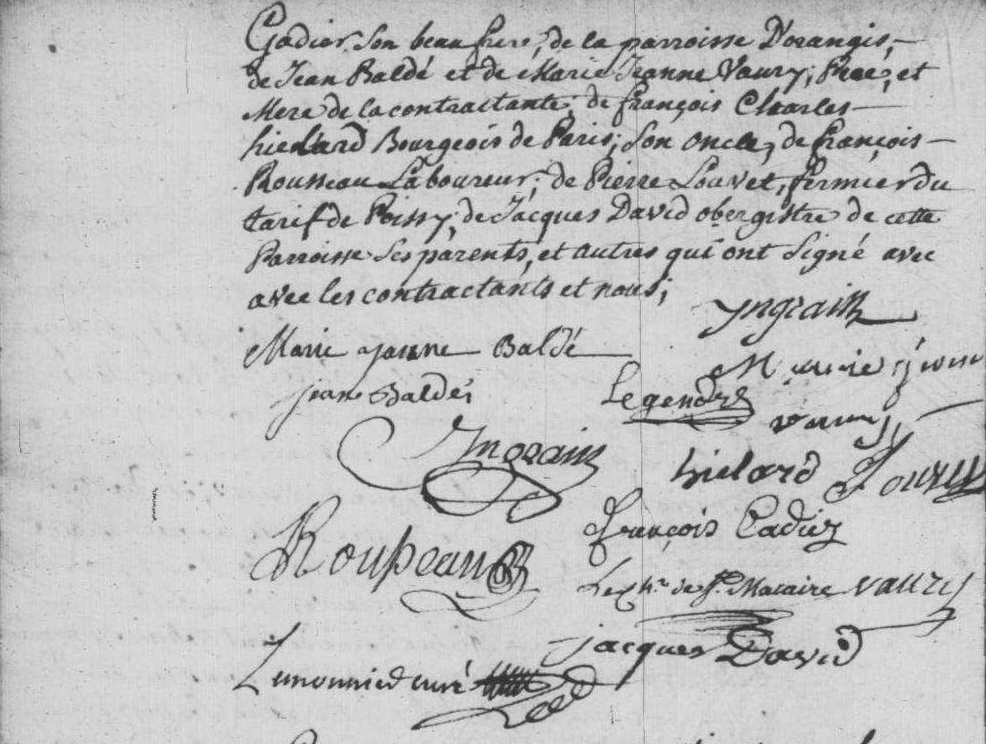 Cadier, son beau frere, de la parroisse D'orangis,
de Jean Baldé et de Marie Jeanne Vaury, Pere, et
Mere de la contractante, de françois Charles
hielard Bourgeois de Paris, son oncle, de françois
Rousseau Laboureur, de Pierre Louvet, fermier du
tarif de Poissy, de Jacques David obergistre de cette
Parroisse ses parents, et autres qui ont signé avec
avec les contractants et nous;
Yngrain
Marie jeanne Baldé
Marie
jean Baldé
Legendre
vaury
Yngrain
hielard Louvet
françois Cadier
Rousseau
de St. Macaire vaury
jacques David
Lemonnier curé